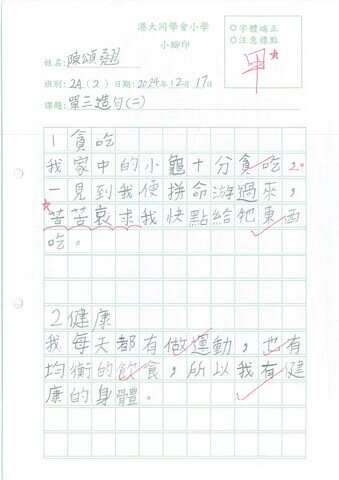 港大同學會小學
小腳印
○字體端正
○注意標點
甲
姓名:陳頌翹
班別:2A(2)日期:2024年12月17日
課題:單三造句(二)
1貪吃
我家中的小龜十分貪吃,
一見到我便拼命游過來,
苦苦哀求我快點給牠東西
吃。
2健康
我每天都有做運動,也有
均衡的飲食,所以我有健
康的身體。